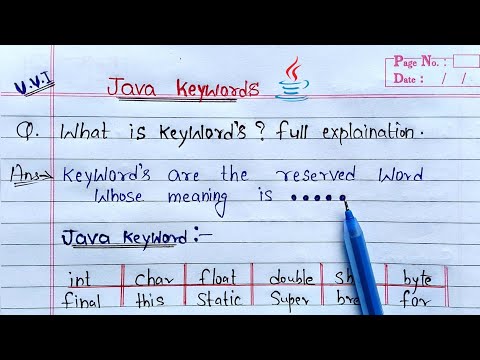 V.V.I
Page No. :
Date : / /
Java Keywords
Q. What is Keyword's ? full explaination.
Ans→ Keyword's are the reserved Word
Whose meaning is •••••
Java Keyword :-
int char float double sh byte
final this Static Super bre for